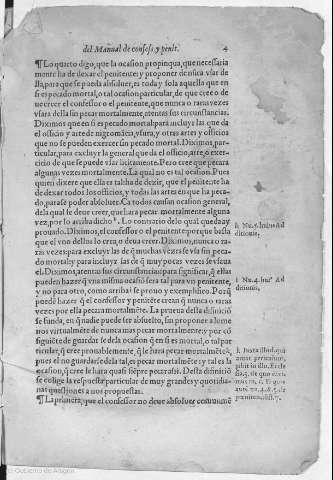 del Manual de confess. y penit. 4
¶ Lo quarto digo, que la ocasion propinqua, que necessaria
mente ha de dexar el penitente: y proponer de nũca vsar de
lla, para que se pueda absoluer, es toda y sola aquella que en
si es pecado mortal, o tal ocasion particular, de que cree o de
ue creer el confessor o el penitente, que nunca o raras vezes
vsara della sin pecar mortalmente, atentas sus circunstancias.
Diximos que en si es pecado mortal para incluyr las que dã
el officio y arte de nigromãcia, vsura, y otras artes y officios
que no se pueden exercer sin pecado mortal. Diximos, par
ticular, para excluyr la general que da el officio, arte, o exer-
cicio de que se puede vsar licitamente. Pero cree que pecara
algunas vezes mortalmente. La qual no es tal ocasion. Pues
quien dixere que ella es tal, ha de dezir, que el penitente ha
de dexar todos los officios, y todas las artes en que ha peca-
do, para se poder absoluer. Ca todos causan ocasion general,
de la qual se deue creer, que hara pecar mortalmente alguna
vez, por lo arriba dicho h. Lo contrario delo qual queda ya
prouado. Diximos, el confessor o el penitente porque basta
que el vno dellos lo crea, o deua creer. Diximos, nunca o ra-
ras vezes: para excluyr las de q̃ muchas vezes se vsa sin peca-
do mortal: y para incluyr las de q̃ muy pocas vezes se vsa sin
el. Diximos, atentas sus circunstancias: para significar, q̃ ellas
pueden hazer q̃ vna misma ocasiõ sea tal para vn penitente,
y no para otro, como arriba i se prouo y exemplifico. Porq̃
puedẽ hazer q̃ el confessor y penitẽte crean q̃ nunca o raras
vezes por ella pecara mortalmẽte. La prueua desta difinició
se funda, en q̃ nadie puede ser absuelto, sin proponer a lo me
nos virtualmente de nunca mas pecar mortalmente: y por cõ
siguiẽte de guardarse dela ocasion q̃ en si es mortal, o tal par
ticular, q̃ cree prouablemente, q̃ le hara pecar mortalmẽte k,
pues el no guardarse de la tal, es pecar mortalmẽte: y tal es la
ocasion, q̃ cree le hara quasi siẽpre pecar assi. Desta difinició
se colige la respuesta particular de muy grandes y quotidia-
nas questiones a nos propuestas.
¶ La primera, que el confessor no deue absoluer
h Nu. 5. huius Ad
ditionis,
i Nu. 4. huiꝰ Ad
ditionis,
k Iuxta illud, qui
amat periculum,